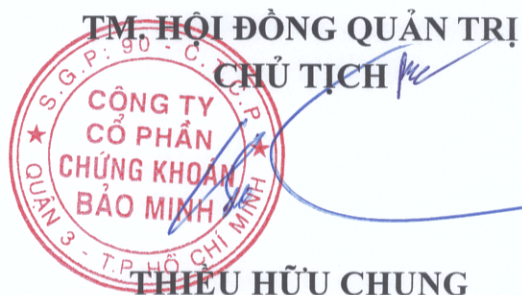 TM. HỘI ĐỒNG QUẢN TRỊ
CHỦ TỊCH
S.G.P: 90 - C.T.C.P
CÔNG TY
CỔ PHẦN
CHỨNG KHOÁN
BẢO MINH
QUẬN 3 - T.P HỒ CHÍ MINH
THIỀU HỮU CHUNG